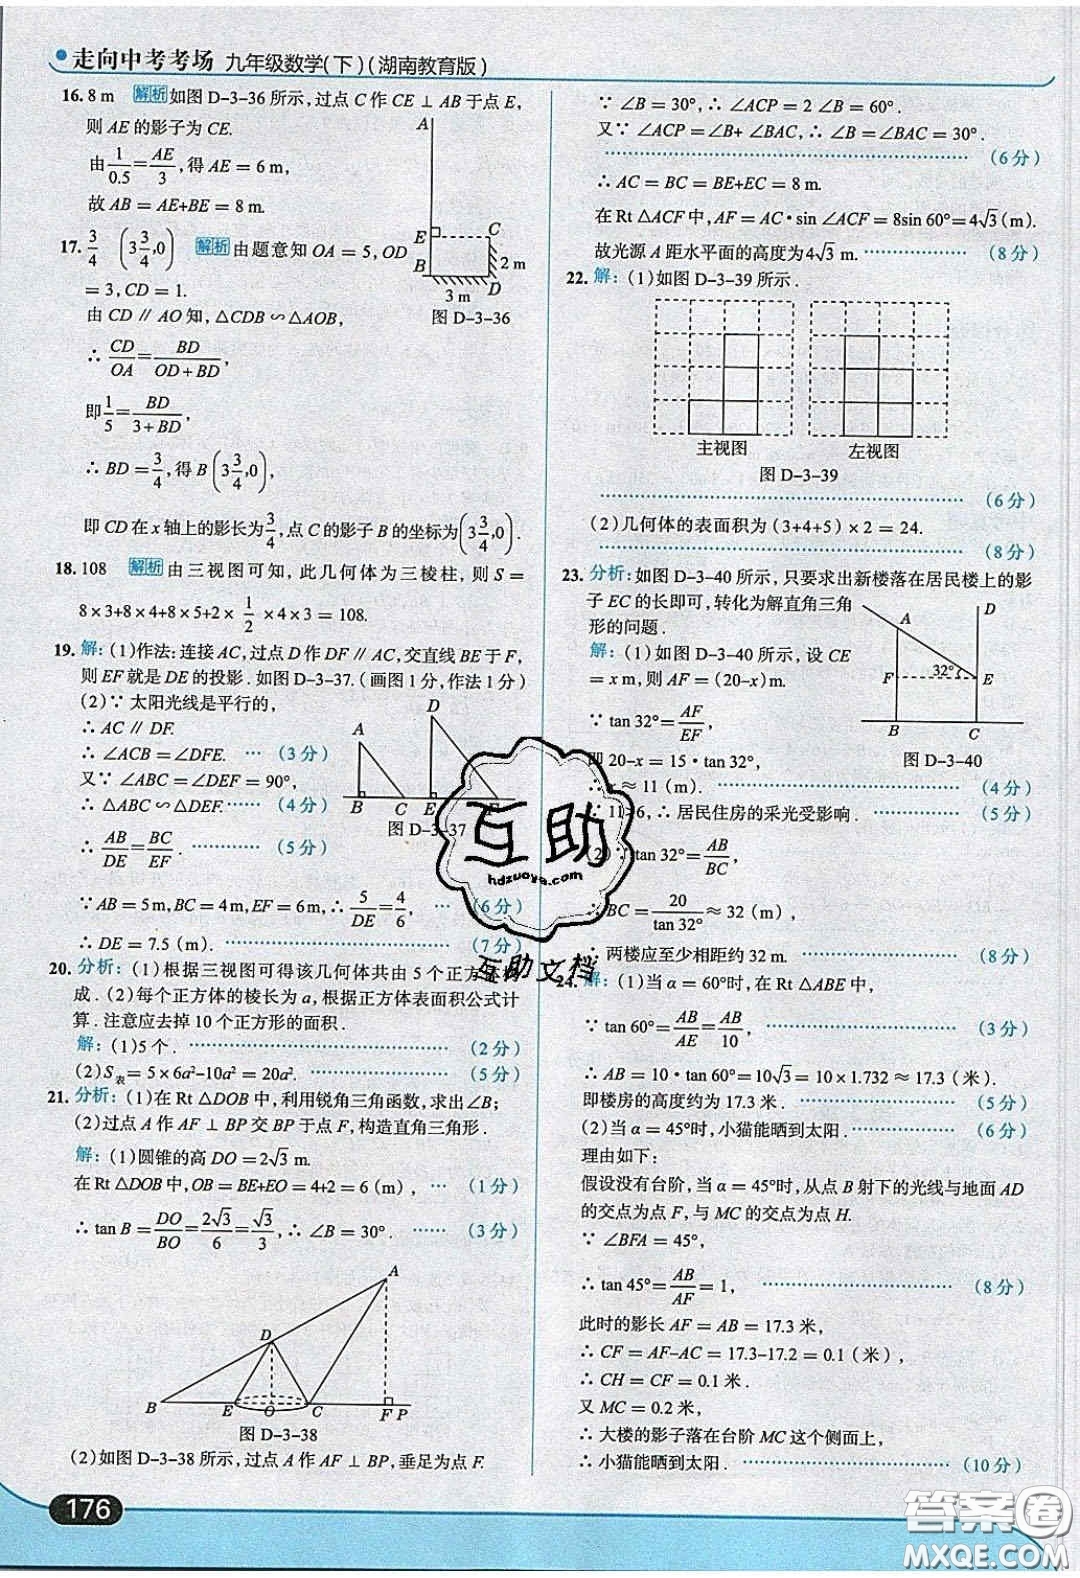 走向中考考场 九年级数学(下)(湖南教育版)
16. 8 m 解析 如图 D-3-36 所示,过点 C 作 CE ⊥ AB 于点 E,
则 AE 的影子为 CE.
由 1/0.5 = AE/3, 得 AE = 6 m,
故 AB = AE+BE = 8 m.
A
E C
B 2 m
3 m D
图 D-3-36
17. 3/4 (3 3/4, 0) 解析 由题意知 OA = 5, OD
= 3, CD = 1.
由 CD ∥ AO 知, △CDB ∽ △AOB,
∴ CD/OA = BD/(OD+BD),
即 1/5 = BD/(3+BD),
∴ BD = 3/4, 得 B(3 3/4, 0),
即 CD 在 x 轴上的影长为 3/4, 点 C 的影子 B 的坐标为 (3 3/4, 0).
18. 108 解析 由三视图可知, 此几何体为三棱柱, 则 S =
8×3+8×4+8×5+2× 1/2 ×4×3 = 108.
19. 解: (1)作法: 连接 AC, 过点 D 作 DF ∥ AC, 交直线 BE 于 F,
则 EF 就是 DE 的投影. 如图 D-3-37. (画图 1 分, 作法 1 分)
(2)∵ 太阳光线是平行的,
∴ AC ∥ DF.
∴ ∠ACB = ∠DFE. … (3 分)
又∵ ∠ABC = ∠DEF = 90°,
∴ △ABC ∽ △DEF. …… (4 分)
∴ AB/DE = BC/EF. ………… (5 分)
A D
B C E F
图 D-3-37
∵ AB = 5 m, BC = 4 m, EF = 6 m, ∴ 5/DE = 4/6, … (6 分)
∴ DE = 7.5 (m). ………… (7 分)
20. 分析: (1)根据三视图可得该几何体共由 5 个正方体
成. (2)每个正方体的棱长为 a, 根据正方体表面积公式计
算. 注意应去掉 10 个正方形的面积.
解: (1)5 个. ………… (2 分)
(2)S表 = 5×6a²-10a² = 20a². ………… (5 分)
21. 分析: (1)在 Rt △DOB 中, 利用锐角三角函数, 求出∠B;
(2)过点 A 作 AF ⊥ BP 交 BP 于点 F, 构造直角三角形.
解: (1)圆锥的高 DO = 2√3 m.
在 Rt △DOB 中, OB = BE+EO = 4+2 = 6 (m), … (1 分)
∴ tan B = DO/BO = 2√3/6 = √3/3, ∴ ∠B = 30°. …… (3 分)
A
D
B E O C F P
图 D-3-38
(2)如图 D-3-38 所示, 过点 A 作 AF ⊥ BP, 垂足为点 F.
176
∵ ∠B = 30°, ∴ ∠ACP = 2 ∠B = 60°.
又∵ ∠ACP = ∠B+ ∠BAC, ∴ ∠B = ∠BAC = 30°.
………… (6 分)
∴ AC = BC = BE+EC = 8 m.
在 Rt △ACF 中, AF = AC·sin ∠ACF = 8sin 60° = 4√3 (m).
故光源 A 距水平面的高度为 4√3 m. ………… (8 分)
22. 解: (1)如图 D-3-39 所示.
主视图 左视图
图 D-3-39
………… (6 分)
(2)几何体的表面积为 (3+4+5)×2 = 24.
………… (8 分)
23. 分析: 如图 D-3-40 所示, 只要求出新楼落在居民楼上的影
子 EC 的长即可, 转化为解直角三角
形的问题.
解: (1)如图 D-3-40 所示, 设 CE
= x m, 则 AF = (20-x) m.
∵ tan 32° = AF/EF,
即 20-x = 15·tan 32°,
A D
F 32° E
B C
图 D-3-40
∴ x ≈ 11 (m). ………… (4 分)
∴ 居民住房的采光受影响. ………… (5 分)
(2)∵ tan 32° = AB/BC,
∴ BC = 20/tan 32° ≈ 32 (m),
∴ 两楼应至少相距约 32 m. ………… (8 分)
24. 解: (1)当 α = 60°时, 在 Rt △ABE 中,
∵ tan 60° = AB/AE = AB/10, ………… (3 分)
∴ AB = 10·tan 60° = 10√3 = 10×1.732 ≈ 17.3 (米).
即楼房的高度约为 17.3 米. ………… (5 分)
(2)当 α = 45°时, 小猫能晒到太阳. ………… (6 分)
理由如下:
假设没有台阶, 当 α = 45°时, 从点 B 射下的光线与地面 AD
的交点为点 F, 与 MC 的交点为点 H.
∵ ∠BFA = 45°,
∴ tan 45° = AB/AF = 1, ………… (8 分)
此时的影长 AF = AB = 17.3 米,
∴ CF = AF-AC = 17.3-17.2 = 0.1 (米),
∴ CH = CF = 0.1 米.
又 MC = 0.2 米,
∴ 大楼的影子落在台阶 MC 这个侧面上,
∴ 小猫能晒到太阳. ………… (10 分)
互助
hdzuoye.com
互助文档
答案圈
MXQE.COM